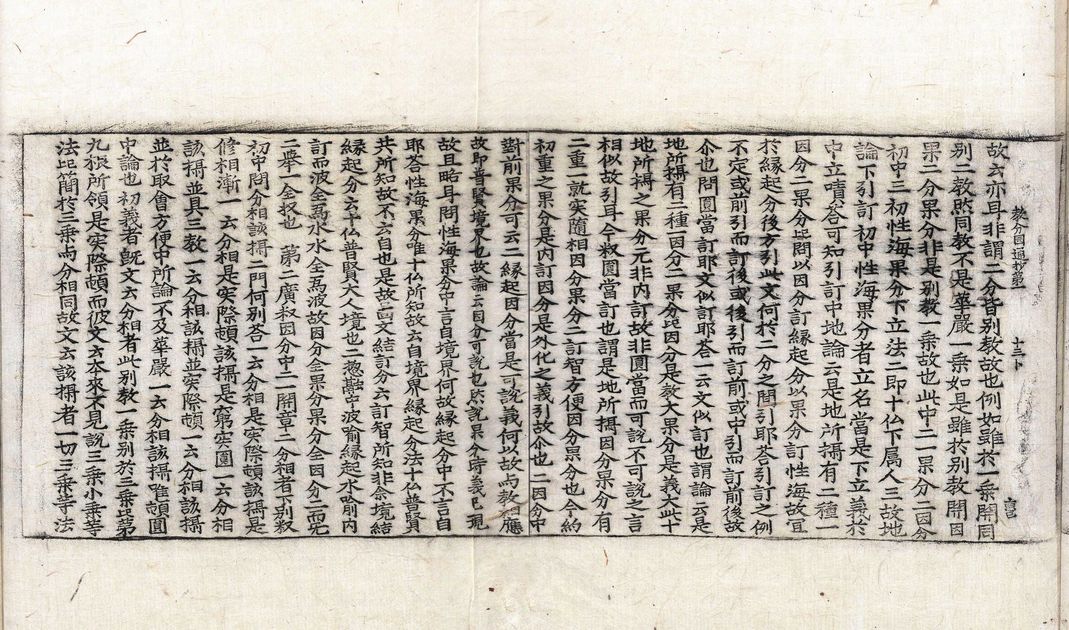 教分圓通抄第一 十三卜
故云亦耳非謂二分皆別教故也例如雖於一乘開同
別二教然同教不是華嚴一乘如是雖於別教開因
果二分果分非是別教一乘故也此中二一果分二因分
初中三初性海果分下立法二即十仏下属人三故地
論下引訂初中性海果分者立名當是下立義於
中立啧答可知引訂中地論云是地所攝有二種一
因分二果分此問以因分訂緣起分以果分訂性海故宜
於緣起分後方引此文何於二分之間引耶荅引訂之例
不定或前引而訂後或後引而訂前或中引而訂前後故
尒也問圓當訂耶文似訂耶荅一云文似訂也謂論云是
地所攝有二種一因分二果分此因分是教大果分是義大此十
地所攝之果分元非內訂故非圓當而可說不可說之言
相似故引耳今叔圓當訂也謂是地所攝因分果分有
二重一就实隨相因分果分二訂智方便因分果分也今約
初重之果分是內訂因分是外化之義引故尒也 二因分中
對前果分可云二緣起因分當是可說義何以故与教相應
故即普賢境界也故論云因分可說也然說果分時義已現
故且略耳問性海果分中言自境界何故緣起分中不言自
耶荅性海果分唯十仏所知故云自境界緣起分法十仏普賢
共所知故不云自也是故古文結訂分云訂智所知非余境結
緣起分云十仏普賢大人境也二惣融中波喻緣起水喻內
訂而波全爲水水全爲波故因分全果分果分全因分二而无
二舉一全收也 第二廣叔因分中二一開章二分相者下別叔
初中問分相該攝二門何別荅一云分相是实際頓該攝是
修相漸一云分相是实際頓該攝是窮实圓一云分相
該攝並具三教一云分相該攝並实際頓一云分相該攝
並於取會方便中所論不及華嚴一云分相該攝唯頓圓
中論也初義者旣文云分相者此別教一乘別於三乘是第
九板所領是实際頓而彼文云本來不見說三乘小乘等
法此簡於三乘与分相同故文云該攝者一切三乘等法